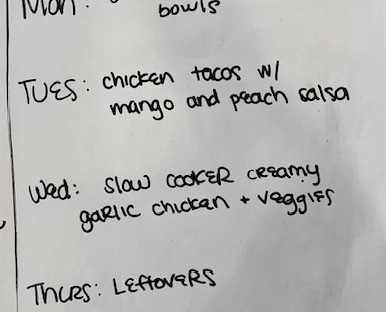 Mon:
bowls
TUES: chicken tacos w/
mango and peach salsa
Wed: Slow cooker creamy
garlic chicken + veggies
Thurs: Leftovers